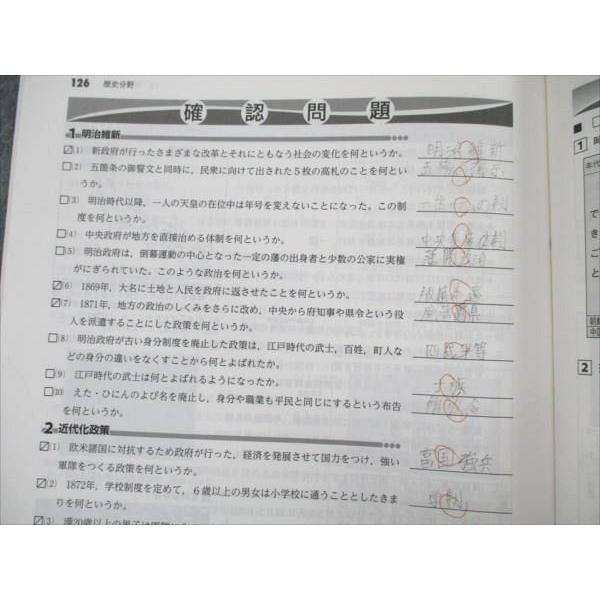 126 歴史分野
確認問題
1 明治維新
(1) 新政府が行ったさまざまな改革とそれにともなう社会の変化を何というか。 明治維新
(2) 五箇条の御誓文と同時に、民衆に向けて出された5枚の高札のことを何とい
うか。
(3) 明治時代以降、一人の天皇の在位中は年号を変えないことになった。この制
度を何というか。 一世 の制
(4) 中央政府が地方を直接治める体制を何というか。 中央 体制
(5) 明治政府は、倒幕運動の中心となった一定の藩の出身者と少数の公家に実権
がにぎられていた。このような政治を何というか。
(6) 1869年、大名に土地と人民を政府に返させたことを何というか。
(7) 1871年、地方の政治のしくみをさらに改め、中央から府知事や県令という役
人を派遣することにした政策を何というか。
(8) 明治政府が古い身分制度を廃止した政策は、江戸時代の武士、百姓、町人な
どの身分の違いをなくすことから何とよばれたか。 四民平等
(9) 江戸時代の武士は何とよばれるようになったか。 士族
(10) えた・ひにんのよび名を廃止し、身分や職業も平民と同じにするという布告
を何というか。
2 近代化政策
(1) 欧米諸国に対抗するため政府が行った、経済を発展させて国力をつけ、強い
軍隊をつくる政策を何というか。 富国強兵
(2) 1872年、学校制度を定めて、6歳以上の男女は小学校に通うこととしたきま
りを何というか。 学制
(3) 満20歳以上の男子は
1
年代
で
き
ご
と
朝鮮
中国
2